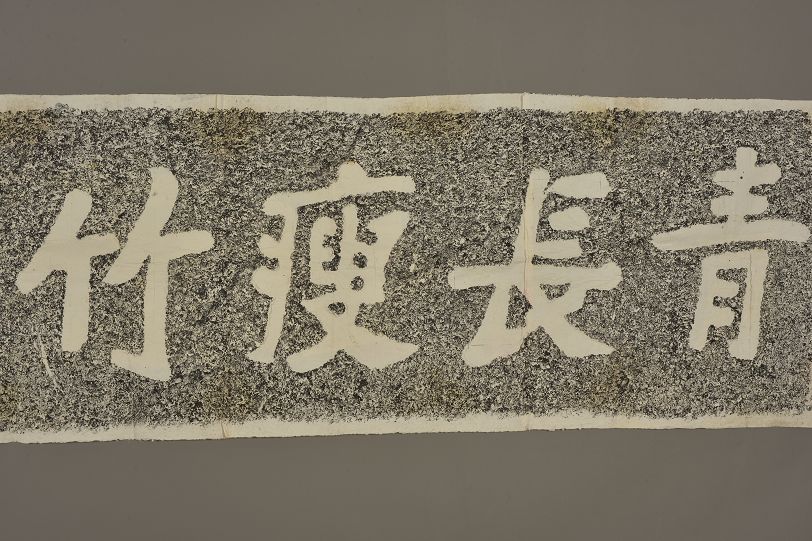 青長瘦竹